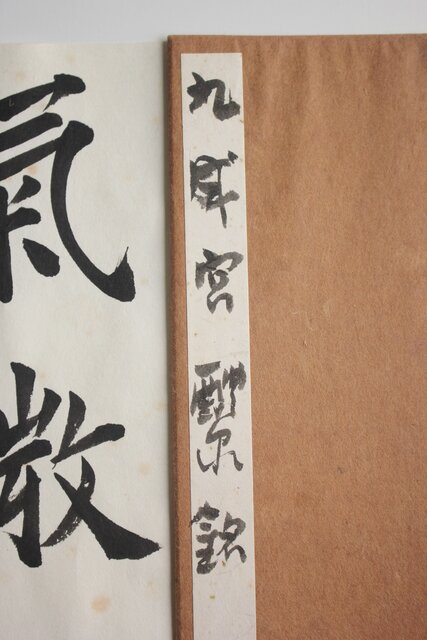 九成宮醴泉銘
氣散